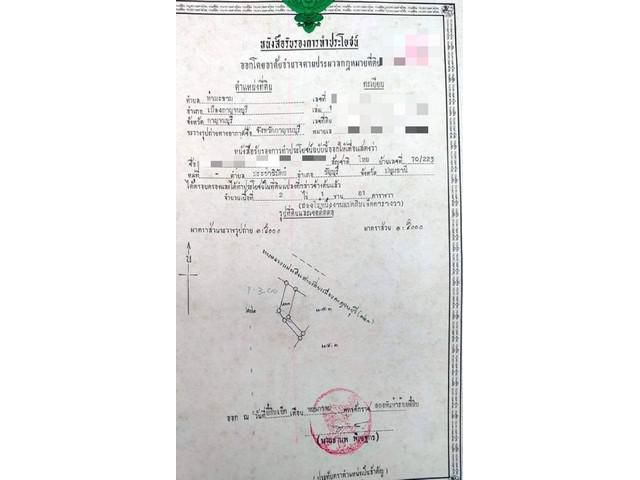 หนังสือรับรองการทำประโยชน์
ออกโดยอาศัยอำนาจตามประมวลกฎหมายที่ดิน
ตำแหน่งที่ดิน ทะเบียน
ตำบล ท่ามะขาม เลขที่
อำเภอ เมืองกาญจนบุรี เล่ม
จังหวัด กาญจนบุรี เลขที่ดิน
ระวางรูปถ่ายทางอากาศชื่อ จังหวัดกาญจนบุรี หมายเลข
หนังสือรับรองการทำประโยชน์ฉบับนี้ออกให้เพื่อแสดงว่า
ชื่อ สัญชาติ ไทย บ้านเลขที่ 70/223
หมู่ที่ - ตำบล ประชาธิปัตย์ อำเภอ ธัญบุรี จังหวัด ปทุมธานี
ได้ครอบครองและได้ทำประโยชน์ในที่ดินแปลงที่กล่าวข้างต้นแล้ว
จำนวนเนื้อที่ 2 ไร่ 1 งาน ตารางวา
รูปที่ดินและเขตติดต่อ
มาตราส่วนระวางรูปถ่าย ๑:๕๐๐๐ มาตราส่วน ๑:๕๐๐๐
น
1-3.00
น.ส.๓
น.ส.๓
ออก ณ วันที่ยี่สิบเอ็ด เดือน พฤษภาคม พุทธศักราช สองพันห้าร้อยสี่สิบ
(ประทับตราตำแหน่งเป็นสำคัญ)